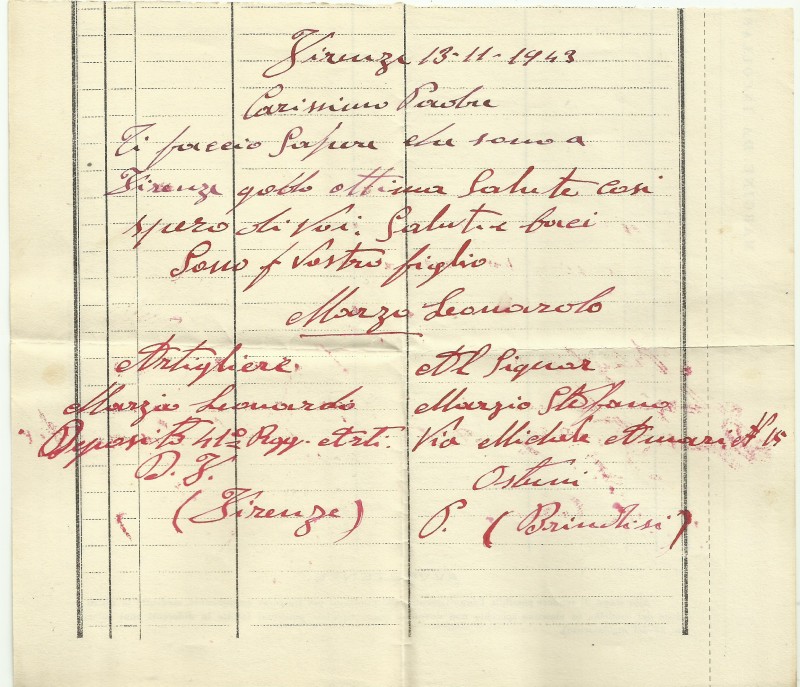 Firenze 13-11-1943
Carissimo Padre
Ti faccio Sapere che sono a
Firenze godo ottima Salute cosi
spero di Voi. Saluti e baci
Sono f Vostro figlio
Marzo Leonardo
Artigliere
Marzio Leonardo
Deposito 41º Regg. Arti.
D. F.
(Firenze)
Al Signor
Marzio Stefano
Via Michele Amari N 15
Ostuni
P. (Brindisi)